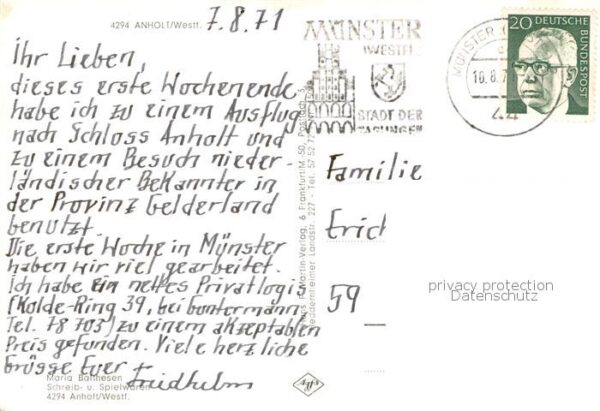 4294 ANHOLT/Westf.
7.8.71
Ihr Lieben,
dieses erste Wochenende
habe ich zu einem Ausflug
nach Schloss Anholt und
zu einem Besuch nieder-
ländischer Bekannter in
der Provinz Gelderland
benutzt.
Die erste Woche in Münster
haben wir viel gearbeitet.
Ich habe ein nettes Privatlogis
(Kolde-Ring 39, bei Guntermann,
Tel. 78 703) zu einem akzeptablen
Preis gefunden. Viele herzliche
Grüsse Euer Friedhelm
Maria
Schreib- u. Spielwaren
4294 Anholt/Westf.
Martin-Verlag, 6 Frankfurt/M 50,
Heddernheimer Landstr. 227 - Tel.
MÜNSTER
(WESTF)
STADT DER
TAGUNGEN
MÜNSTER
10.8.71
44
20 DEUTSCHE
BUNDESPOST
Familie
Erich
59
privacy protection
Datenschutz
Agfa